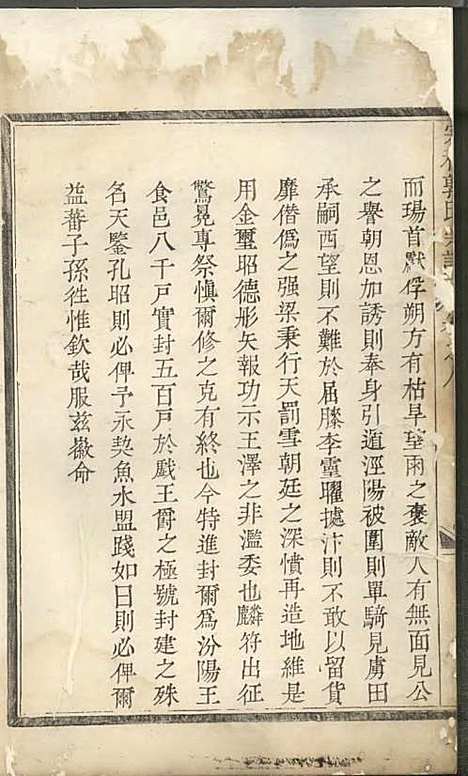 而瑒首獻俘朔方有枯旱望雨之褒敵人有無面見公
之譽朝恩加誘則奉身引遁涇陽被圍則單騎見虜田
承嗣西望則不難於屈膝李靈曜據汴則不敢以留貨
靡僭僞之强梁秉行天罰雪朝廷之深憤再造地維是
用金璽昭德彤矢報功示王澤之非濫委也麟符出征
鷩冕專祭慎爾修之克有終也今特進封爾爲汾陽王
食邑八千戸實封五百戸於戲王爵之極號封建之殊
名天鑒孔昭則必俾予永契魚水盟踐如日則必俾爾
益蕃子孫徃惟欽哉服茲徽命
郭氏宗譜